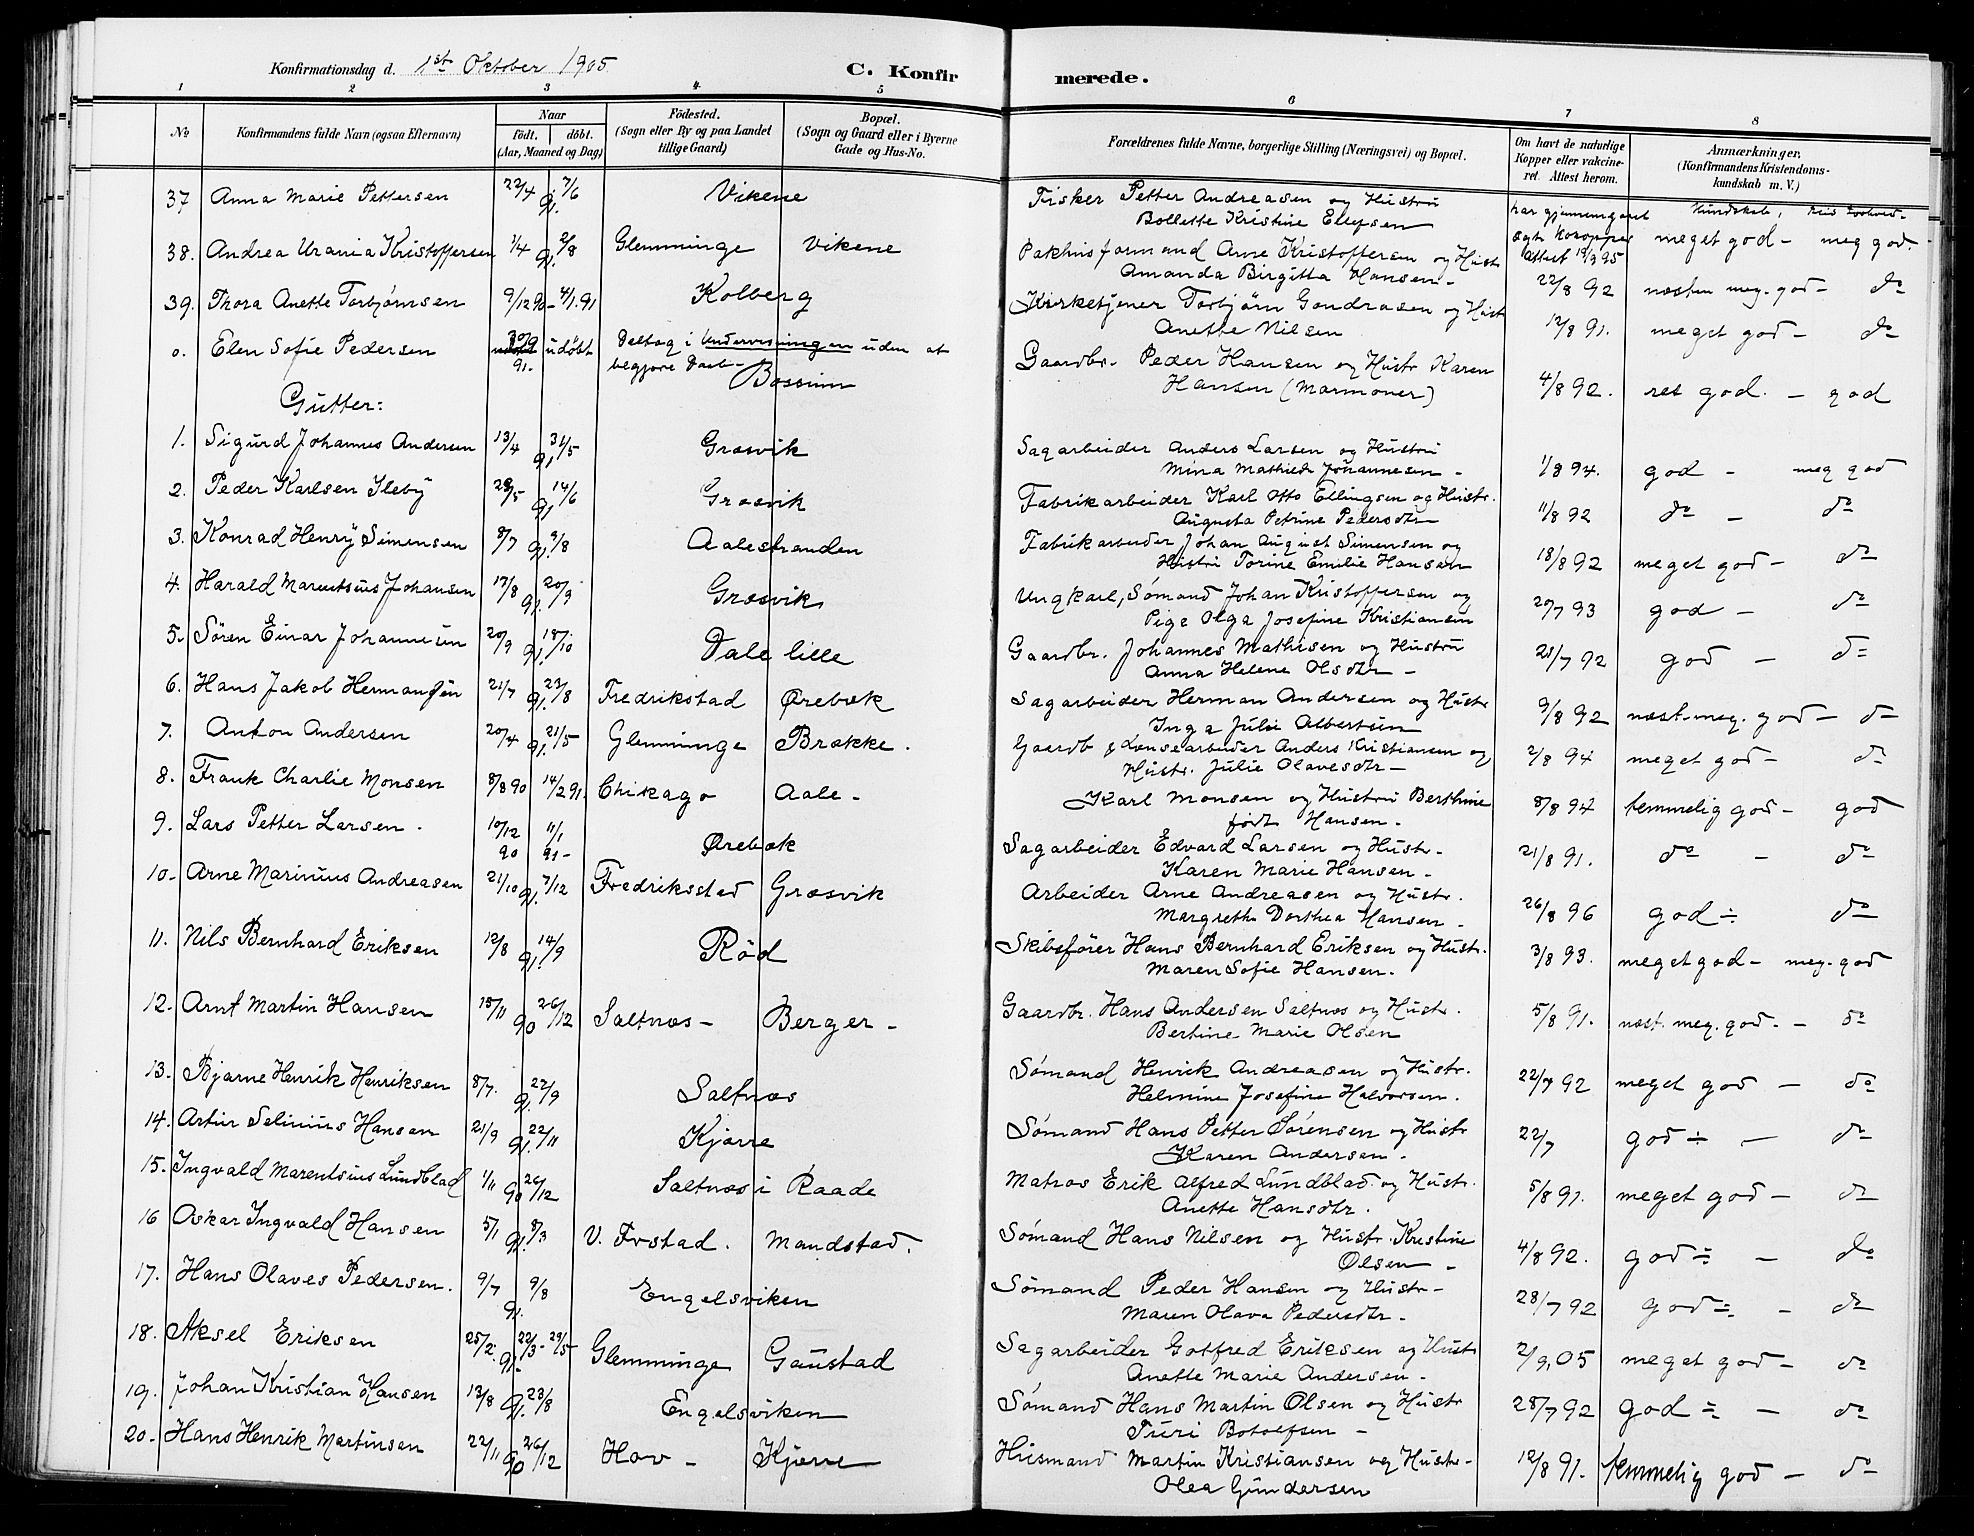 Konfirmationsdag d. 1st Oktober 1905 C. Konfir merede.
1 2 3 4 5 6 7 8
No
Konfirmandens fulde Navn (ogsaa Efternavn)
Naar
födt. döbt.
(Aar, Maaned og Dag)
Födested.
(Sogn eller By og paa Landet
tillige Gaard)
Bopæl.
(Sogn og Gaard eller i Byerne
Gade og Hus-No.
Forældrenes fulde Navne, borgerlige Stilling (Næringsvei) og Bopæl.
Om havt de naturlige
Kopper eller vakcine-
ret. Attest herom.
Anmærkninger.
(Konfirmandens Kristendoms-
kundskab m. V.)
37 Anna Marie Pettersen 22/4 91. 7/6 Vikene Fisker Petter Andreasen og Hustru
Bollette Kristine Elefsen har gjennemgaaet
ægte Kokopper Attest 19/9 95 Kundskab, meget god - meg god.
38. Andrea Urania Kristoffersen 1/4 91. 2/8 Glemminge Vikene Pakhusformand Arne Kristoffersen og Hustr
Amanda Birgitta Hansen - 22/8 92 næsten meg. god - do
39. Thora Anette Torbjørnsen 9/12 90- 4/1.91 Kolberg Kirketjener Torbjørn Gundrosen og Hustr
Anette Nilsen 12/8 91. meget god - do
o. Elen Sofie Pedersen 30/9 91. udöbt Deltog i Undervisningen uden at
begjøre Daab - Bossum Gaardbr. Peder Hansen og Hustr Karen
Hansen (Marmoner) 4/8 92. ret god. - god
Gutter:
1. Sigurd Johannes Andersen 13/4 91. 31/5 Græsvik Sagarbeider Anders Larsen og Hustru
Mina Mathilde Johannesen - 1/8 94. god - meg god
2. Peder Karlsen Ileby 28/5 91. 14/6 Græsvik Fabrikarbeider Karl Otto Ellingsen og Hustr.
Augusta Petrine Pedersdtr 11/8 92 do - do
3. Konrad Henry Simensen 8/7 91. 9/8 Aalestranden Fabrikarbeider Johan August Simensen og
Hustru Torine Emilie Hansen 18/8 92 meget god - do
4. Harald Marentsius Johansen 17/8 91. 20/9 Græsvik Ungkarl, Sømand Johan Kristoffersen og
Pige Olga Josefine Kristiansen 20/7 93 god - do
5. Sören Einar Johannesen 20/9 91. 18/10 Dale lille Gaardbr. Johannes Mathisen og Hustru
Anna Helene Olsdtr - 21/7 92 god - do
6. Hans Jakob Hermansen 21/7 91. 23/8 Fredrikstad Ørebæk Sagarbeider Herman Andersen og Hustr
Inga Julie Albertsen 9/8 92 næst. meg. god - do
7. Anton Andersen 20/4 91. 21/5 Glemminge Brække. Gaardb & Lænsearbeider Anders Kristiansen og
Hustr. Julie Olavesdtr - 2/8 94 meget god - do
8. Frank Charlie Monsen 8/8 90 14/2 91. Chikago Aale - Karl Monsen og Hustru Berthine
født Hansen - 8/8 94 temmelig god - god
9. Lars Petter Larsen. 10/12 90 11/1 91- Ørebæk Sagarbeider Edvard Larsen og Hustr.
Karen Marie Hansen - 21/8 91. do - do
10- Arne Marinius Andreasen 21/10 91. 7/12 Fredriksstad Græsvik Arbeider Arne Andreasen og Hustr.
Margrethe Dorthea Hansen - 26/8 96 god ÷ do
11. Nils Bernhard Eriksen 12/8 91. 14/9 Röd Skibsfører Hans Bernhard Eriksen og Hustr.
Maren Sofie Hansen. 3/8 93. meget god - meg. god
12. Arnt Martin Hansen 15/11 90 26/12 Saltnæs - Berger - Gaardbr. Hans Andersen Saltnæs og Hustr.
Bertine Marie Olsen 5/8 91. næst. meg. god. - do
13. Bjarne Henrik Henriksen 8/7. 91. 27/9 Saltnæs Sømand Henrik Andreasen og Hustr.
Helmine Josefine Halvorsen. 22/7 92 meget god - do
14. Artur Selinius Hansen 21/9 91. 22/11 Kjærre Sømand Hans Petter Sørensen og Hustr
Karen Andersen. 22/7 god ÷ - do
15. Ingvald Marentsius Lundblad 1/11 90 26/12 Saltnæs i Raade Matros Erik Alfred Lundblad og Hustr.
Anette Hansdtr. 5/8 91. meget god - do
16 Oskar Ingvald Hansen 5/1 91. 8/3 V. Frstad. Mandstad. Sømand Hans Nilsen og Hustr. Kristine
Olsen - 4/8 92. god ÷ - do
17. Hans Olaves Pedersen. 9/7 91. 9/8 Engelsviken Sømand Peder Hansen og Hustr-
Maren Olava Pedersdtr. 28/7 92 god ÷ - do
18. Aksel Eriksen 25/2. 91. 22/3- 29/5- Glemminge Gaustad Sagarbeider Gotfred Eriksen og Hustr
Anette Marie Andersen - 2/9, 05 meget god - do
19. Johan Kristian Hansen 13/8 91. 23/8 Engelsviken Sømand Hans Martin Olsen og Hustr
Turi Botolfsen - 28/7 92 god ÷ - do
20- Hans Henrik Martinsen 22/11 90 26/12 Hav - Kjærre Husmand Martin Kristiansen og Hustr-
Olea Gundersen 12/8 91. temmelig god - do